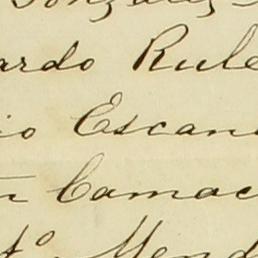 Gonzalez
ardo Rule
io Escan
n Camac
to Mend